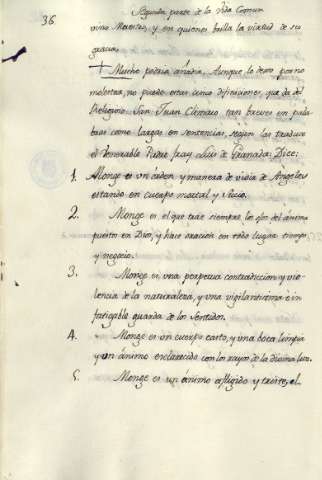 36
Segunda parte de la Vida Comun
vino Maestro, y en quienes brilla la virtud de su
gracia.
+ Mucho podria añadir. Aunque lo dexo por no
molestar, no puedo estar cinco difiniciones, que da del
Religioso San Juan Climaco tan breves en pala
bras como largas en sentencias, segun las traduce
el Venerable Padre fray Luis de Granada: Dice:
1. Monge es un orden, y manera de vida de Angeles
estando en cuerpo mortal y sucio.
2. Monge es el que trae siempre los ojos del ánimo
puestos en Dios, y hace oracion en todo lugar tiempo
y negocio.
3. Monge es, una perpetua contradiccion y vio
lencia de la naturaleza, y una vigilantisima è in
fatigable guarda de los sentidos.
4. Monge es un cuerpo casto, y una boca limpia
y un ánimo esclarecido con los rayos de la divina luz.
5. Monge es un ánimo afligido y triste, el